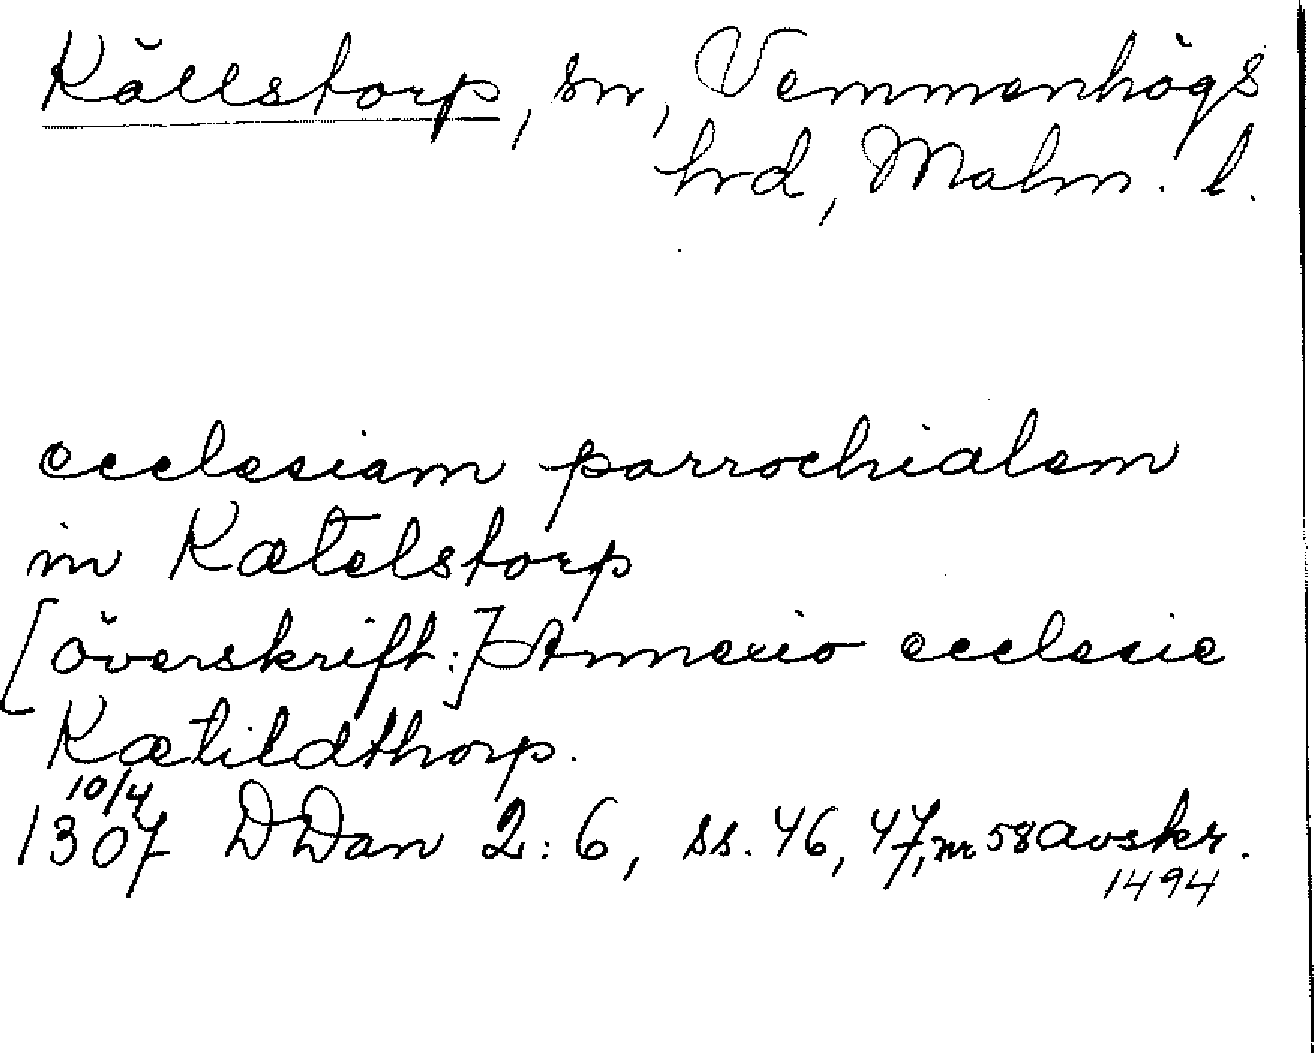 Källstorp, sn, Vemmenhögs
hrd, Malm. l.
ecclesiam parrochialem
in Kætelstorp
[överskrift:] Annexio ecclesie
Kætildthorp.
10/4
1307 DDan 2:6, ss. 46, 47, nr 58 avskr.
1494